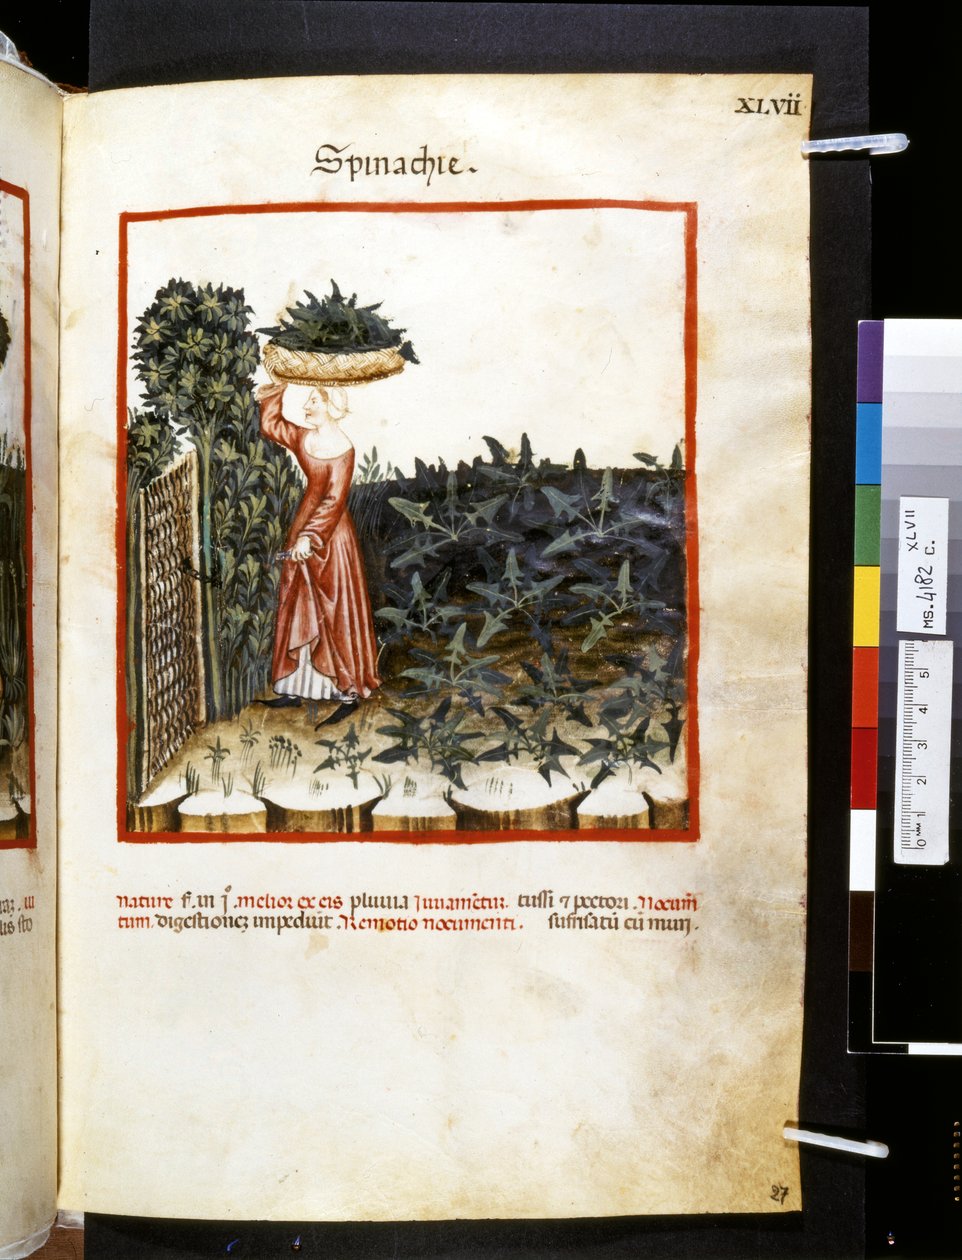 XLVii
Spinachie.
nature f. in j°. melior ex eis pluuia Juuamētuȝ. tussī ⁊ pectori. Nocum̄
tum. digestioneȝ impediūt. Remotio nocumenti. suffrisatū cū muri.
lus sto
27
MS. 4182 C.
XLVII
0 MM 1 2 3 4 5